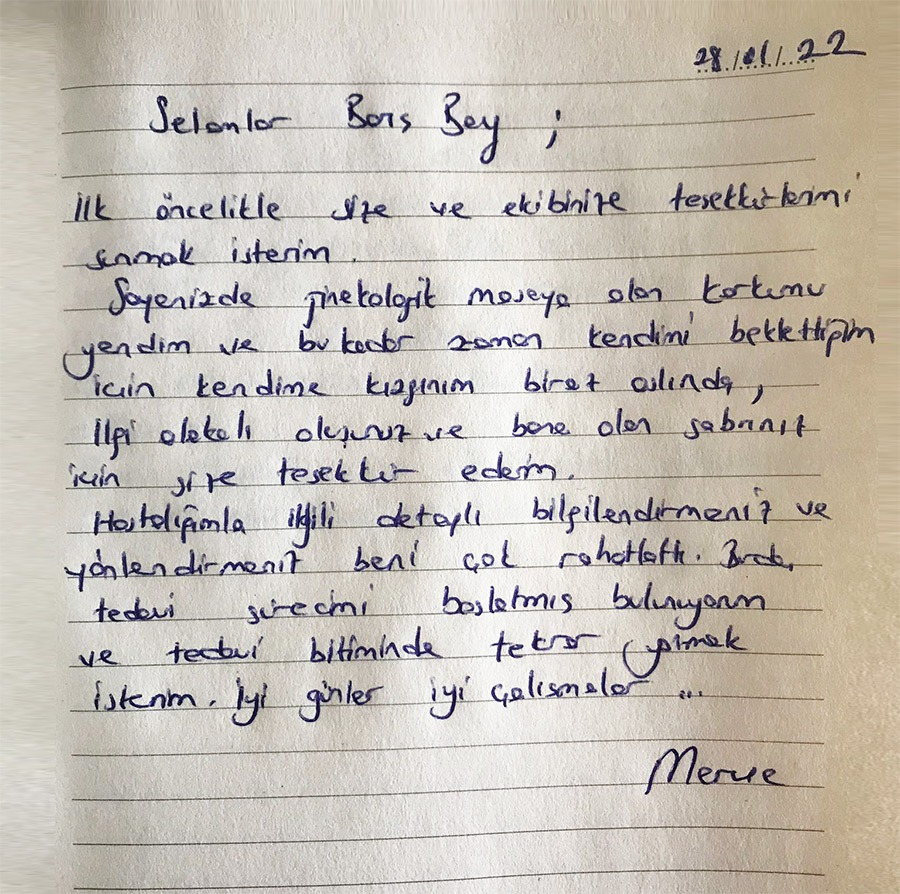 28/01/22
Selamlar Barış Bey ;
İlk öncelikle size ve ekibinize teşekkürlerimi
sunmak isterim.
Sayenizde jinekolojik masaya olan korkumu
yendim ve bu kadar zaman kendimi beklettiğim
için kendime kızgınım biraz aslında,
İlgi alakalı oluşunuz ve bana olan sabrınız
için size teşekkür ederim.
Hastalığımla ilgili detaylı bilgilendirmeniz ve
yönlendirmeniz beni çok rahatlattı.
tedavi sürecimi başlatmış bulunuyorum
ve tedavi bitiminde tekrar gelmek
isterim. İyi günler iyi çalışmalar ...
Merve